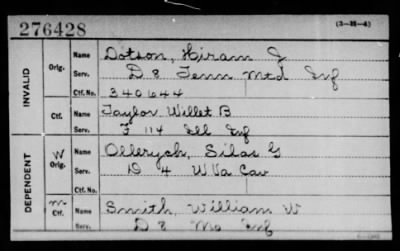 276428
(3—M—4)
INVALID
Orig.
Name Dotson, Hiram J
Serv. D 8 Tenn Mtd Inf
Ctf. No. 340644
Ctf.
Name Taylor Willet B
Serv. F 114 Ill Inf
DEPENDENT
W
Orig.
Name Silas G
Serv. D 4 W Va Cav
Ctf. No.
M
Ctf.
Name Smith, William W
Serv. D 8 Mo Inf